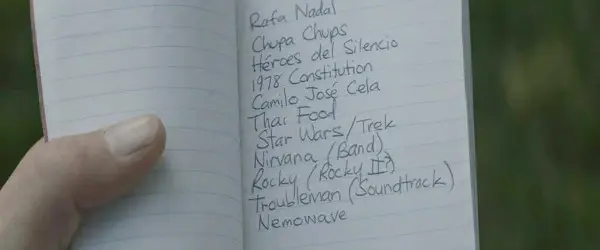 Rafa Nadal
Chupa Chups
Héroes del Silencio
1978 Constitution
Camilo José Cela
Thai Food
Star Wars/Trek
Nirvana (Band)
Rocky (Rocky II?)
Troubleman (Soundtrack)
Nemowave